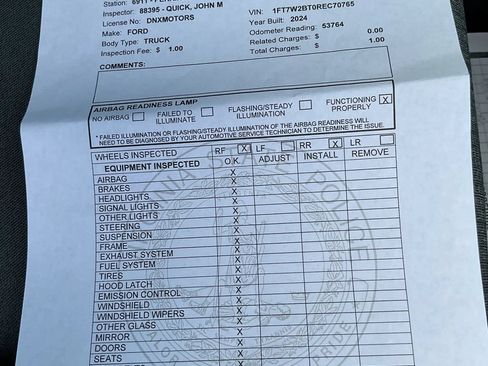 Station: 6911 -
Inspector: 88395 - QUICK, JOHN M
VIN: 1FT7W2BT0REC70765
License No: DNXMOTORS
Year Built: 2024
Make: FORD
Odometer Reading: 53764
Body Type: TRUCK
Related Charges: $ 0.00
Inspection Fee: $ 1.00
Total Charges: $ 1.00
COMMENTS:
AIRBAG READINESS LAMP
NO AIRBAG
FAILED TO ILLUMINATE
FLASHING/STEADY ILLUMINATION
FUNCTIONING PROPERLY X
* FAILED ILLUMINATION OR FLASHING/STEADY ILLUMINATION OF THE AIRBAG READINESS WILL
NEED TO BE DIAGNOSED BY YOUR AUTOMOTIVE SERVICE TECHNICIAN TO DETERMINE THE ISSUE.
WHEELS INSPECTED RF X LF RR X LR
EQUIPMENT INSPECTED O.K. ADJUST INSTALL REMOVE
AIRBAG X
BRAKES X
HEADLIGHTS X
SIGNAL LIGHTS X
OTHER LIGHTS X
STEERING X
SUSPENSION X
FRAME X
EXHAUST SYSTEM X
FUEL SYSTEM X
TIRES X
HOOD LATCH X
EMISSION CONTROL X
WINDSHIELD X
WINDSHIELD WIPERS X
OTHER GLASS X
MIRROR X
DOORS X
SEATS X